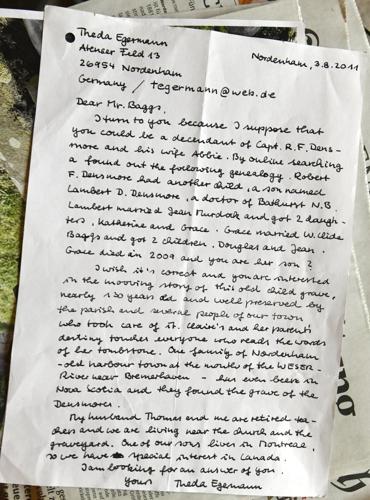 Theda Egermann
Ateneer Feld 13
Nordenham, 3.8.2011
26954 Nordenham
Germany / tegermann@web.de
Dear Mr. Baggs,
I turn to you because I suppose that
you could be a decendant of Capt. R.F. Dens-
more and his wife Abbie. By online searching
a found out the following genealogy. Robert
F. Densmore had another child, a son named
Lambert D. Densmore, a doctor of Bathurst N.B.
Lambert married Jean Murdah and got 2 daugh-
ters, Katherine and Grace. Grace married W. Clide
Baggs and got 2 children, Douglas and Jean.
Grace died in 2009 and you are her son?
I wish it's correct and you are interested
in the mooving story of this old child grave,
nearly 130 years old and well preserved by
the parish and several people of our town
who took care of it. Claire's and her parents'
destiny touches everyone who reads the words
of her tombstone. One family of Nordenham
-old harbour town at the mouth of the WESER-
River near Bremerhaven - has even been in
Nova Scotia and they found the grave of the
Densmores.
My husband Thomas and me are retired tea-
chers and we are living near the church and the
graveyard. One of our sons lives in Montreal,
so we have special interest in Canada.
I am looking for an answer of you.
Yours Theda Egermann